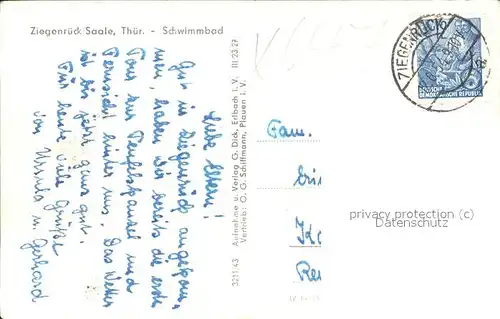 Ziegenrück Saale, Thür. - Schwimmbad
Liebe Eltern!
Gut in Ziegenrück angekom-
men, haben wir bereits die erste
Tour zur Teufelskanzel und
Fernsicht hinter uns. Das Wetter
ist bis jetzt ganz gut.
Für heute viele Grüße
von Ursula u. Gerhard
3211/43 Aufnahme u. Verlag G. Dick, Erlbach i. V. III/23/29
Vertrieb: O. G. Schiffmann, Plauen i. V.
ZIEGENRÜCK
a
DEUTSCHE
DEMOKRATISCHE REPUBLIK
Fam.
privacy protection (c)
Datenschutz